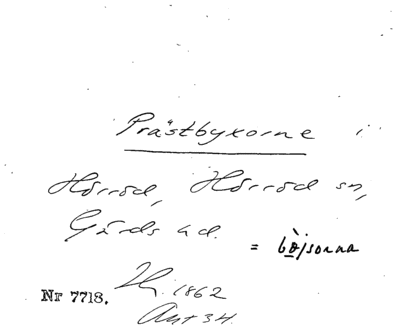 Prästbyxorne i
Hörröd, Hörröd sn,
Gärds hd.
= bòjsorna
Nr 7718.
1862
34